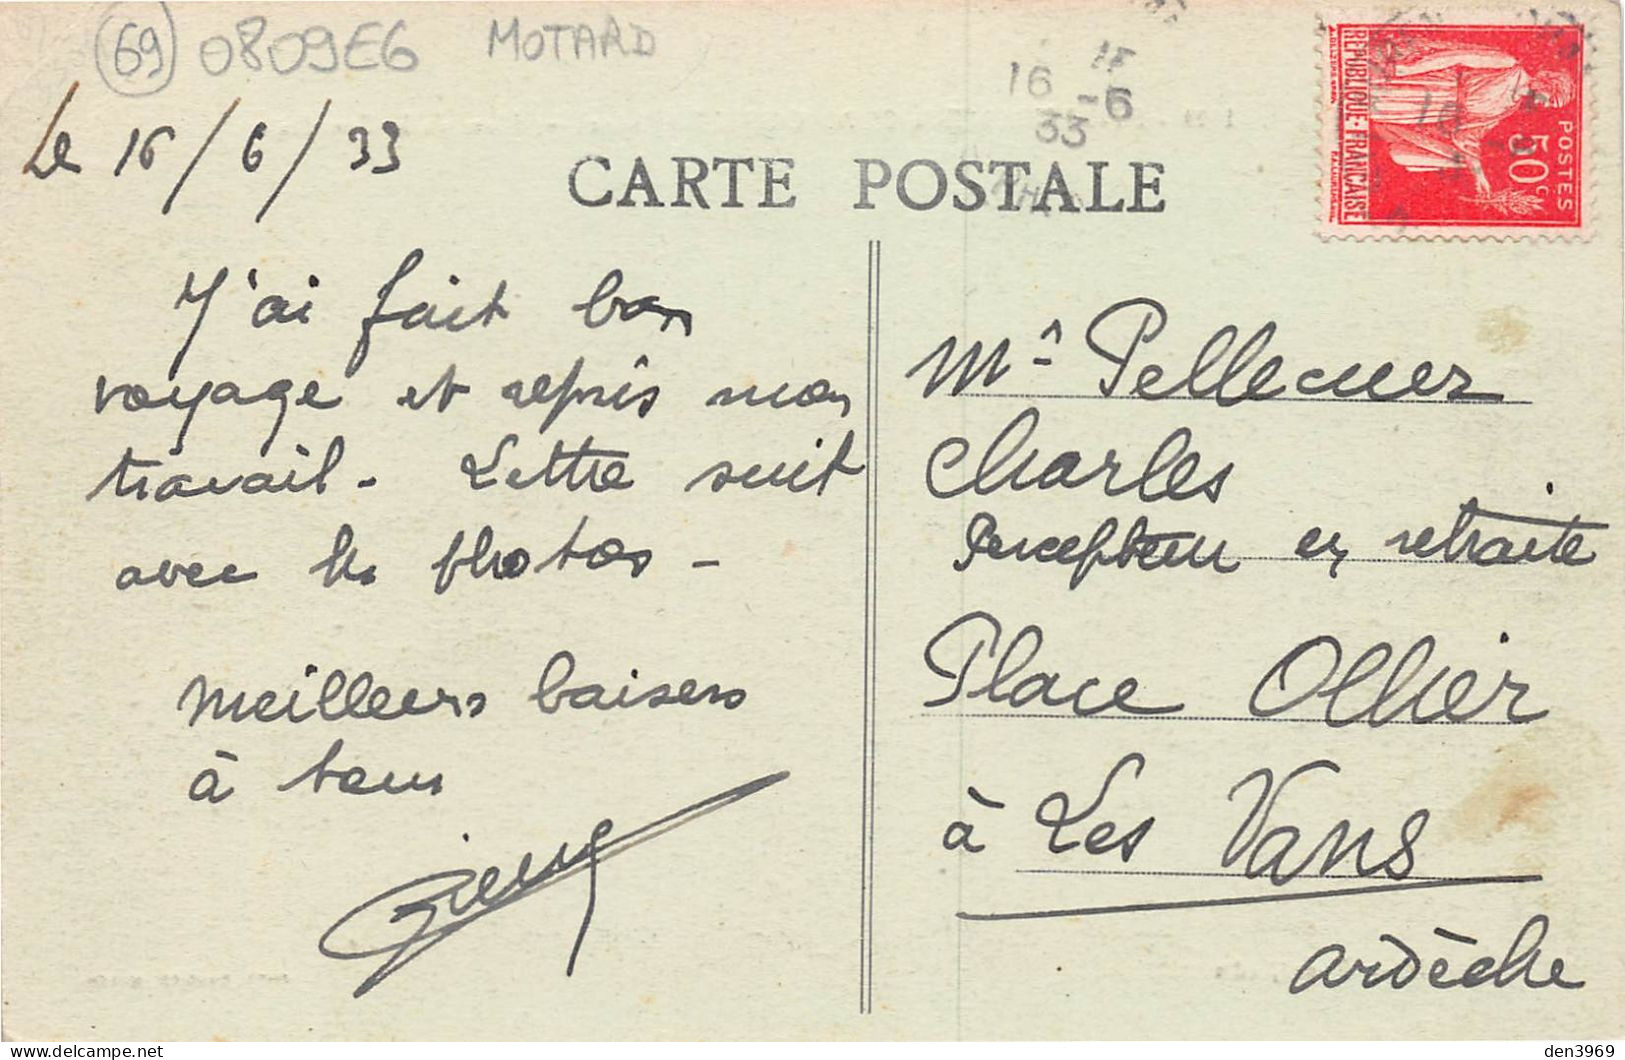 69 0809E6 MOTARD
Le 16/6/33
15
16 -6
33
RÉPUBLIQUE FRANÇAISE
POSTES
50c
CARTE POSTALE
J'ai fait bon
voyage et repris mon
travail - Lettre suit
avec les photos -
Meilleurs baisers
à tous
Mr Pellecuer
Charles
Percepteur en retraite
Place Ollier
à Les Vans
Ardèche
den3969